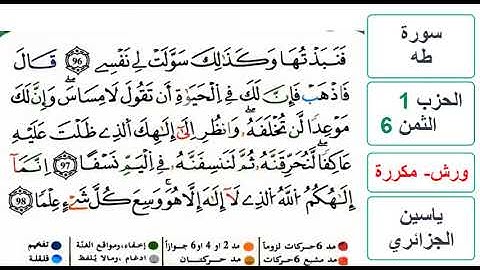 فَنَبَذْتُهَا وَكَذَٰلِكَ سَوَّلَتْ لِي نَفْسِي 96 قَالَ
فَاذْهَبْ فَإِنَّ لَكَ فِي الْحَيَوٰةِ أَن تَقُولَ لَا مِسَاسَ وَإِنَّ لَكَ
مَوْعِدًا لَّن تُخْلَفَهُ وَانظُرْ إِلَىٰ إِلَٰهِكَ الَّذِي ظَلْتَ عَلَيْهِ
عَاكِفًا لَّنُحَرِّقَنَّهُ ثُمَّ لَنَنسِفَنَّهُ فِي الْيَمِّ نَسْفًا 97 إِنَّمَا
إِلَٰهُكُمُ اللَّهُ الَّذِي لَا إِلَٰهَ إِلَّا هُوَ وَسِعَ كُلَّ شَيْءٍ عِلْمًا 98
سورة
طه
الحزب 1
الثمن 6
ورش- مكررة
ياسين
الجزائري
مد 6 حركات لزوماً مد 2 أو 4 أو 6 جوازاً إخفاء، ومواقع الغنة تفخيم
مد مشبع 6 حركات مد حركتان ادغام ، ومالا يُلفظ قلقلة